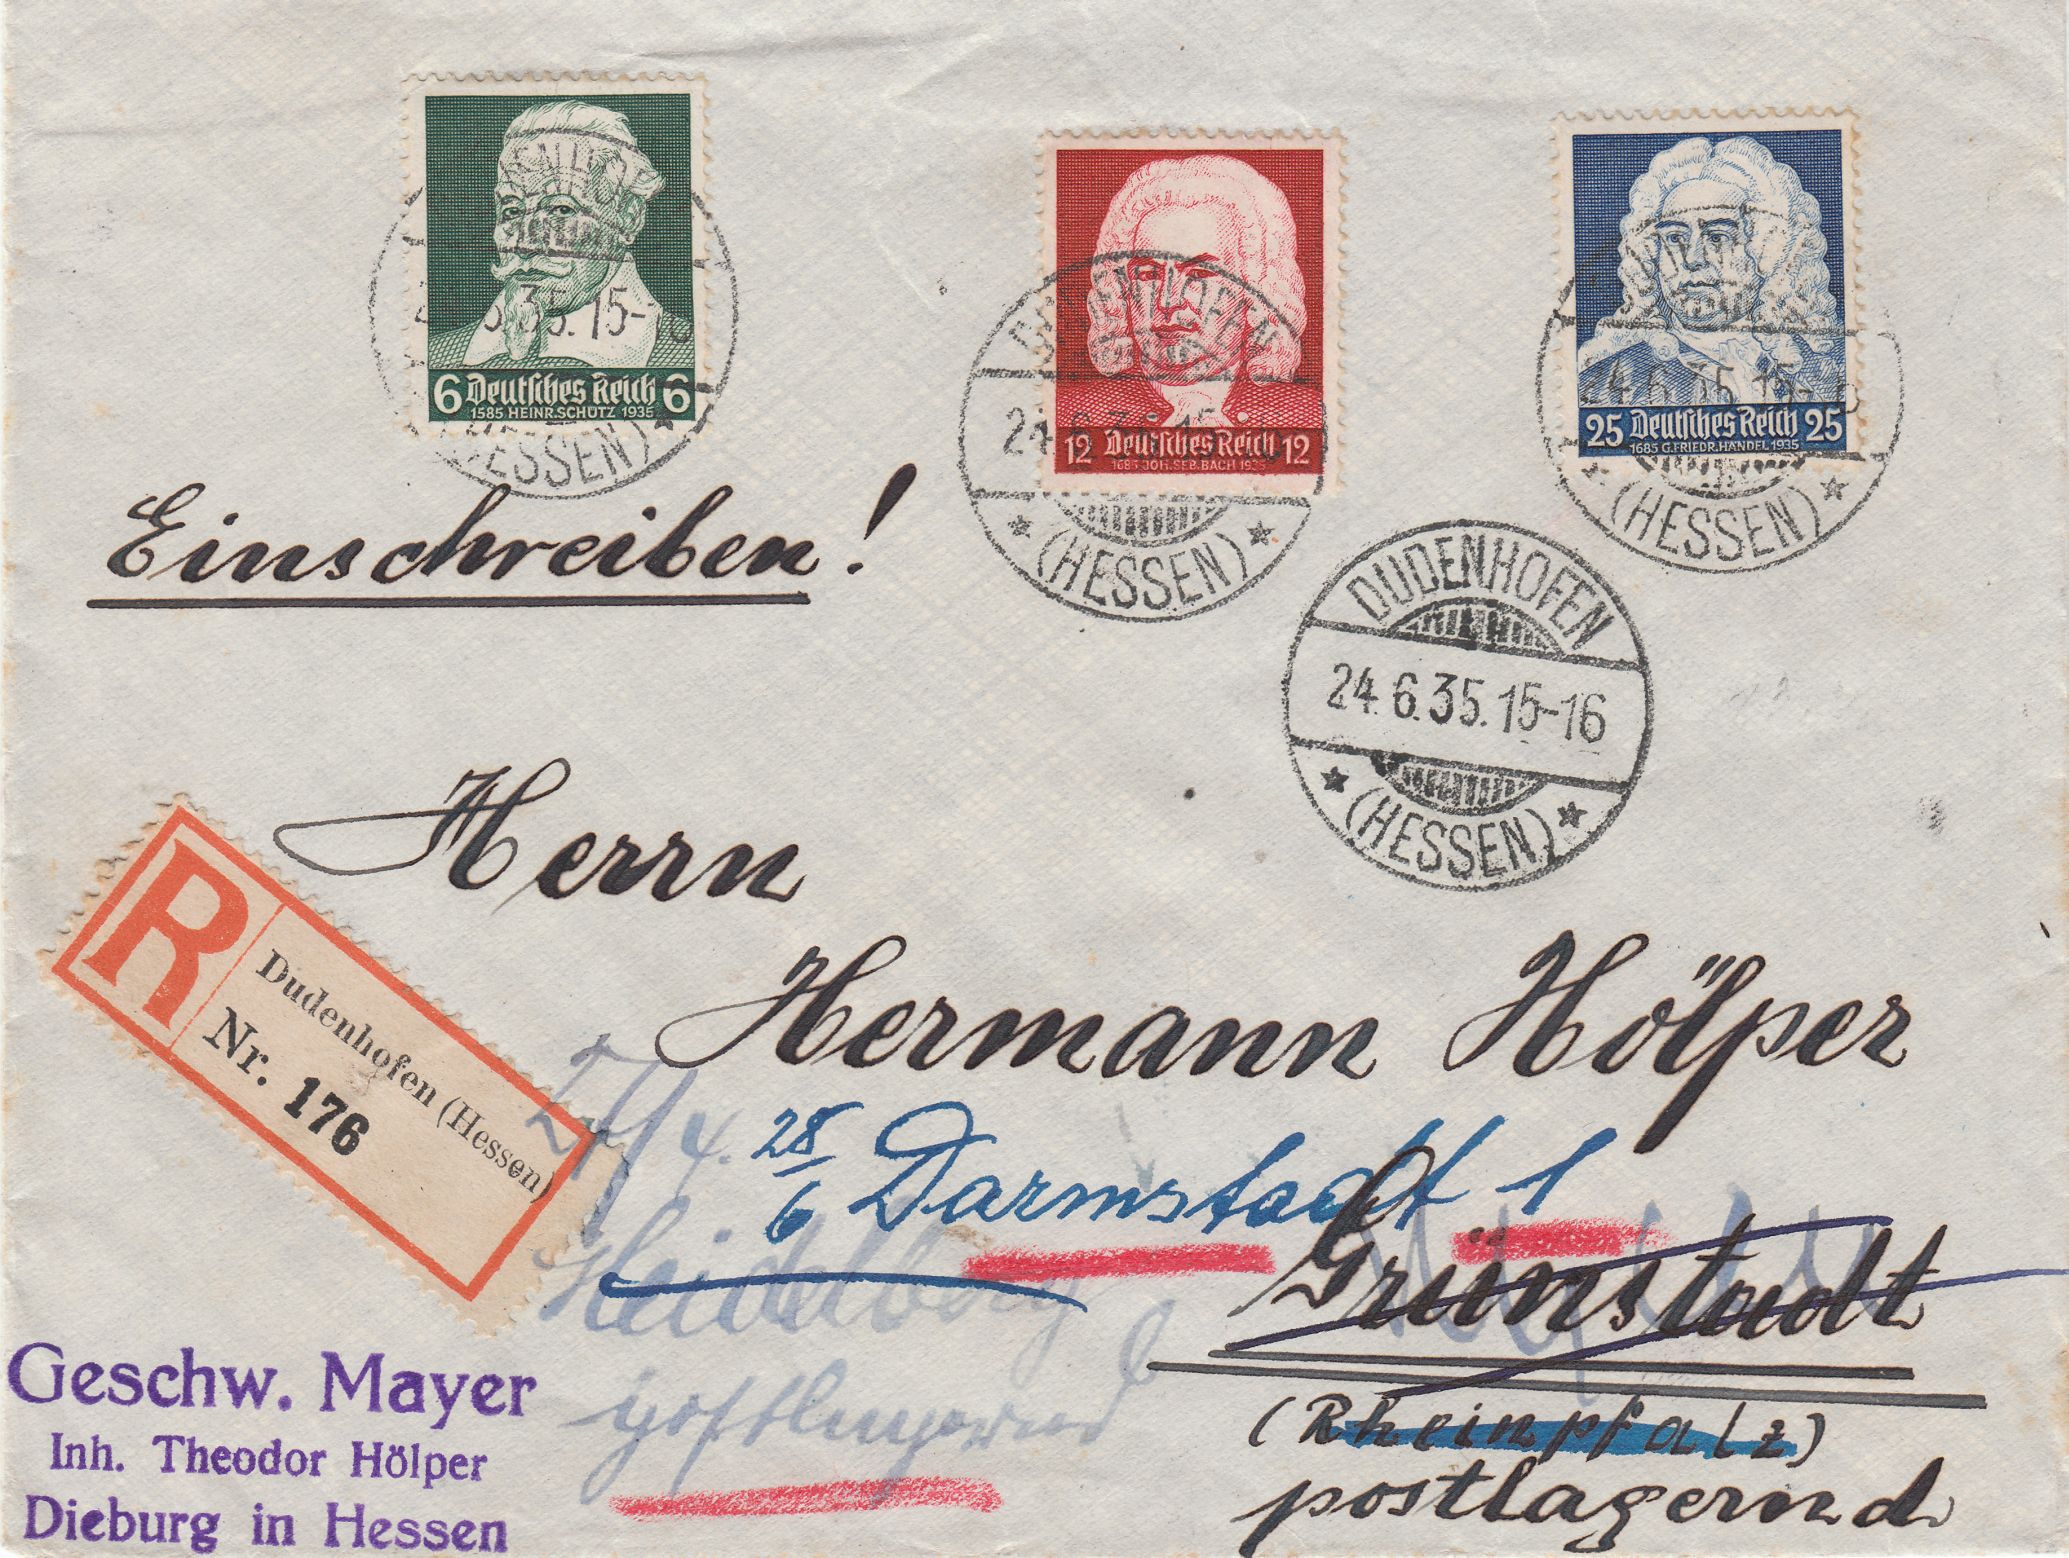 6 Deutsches Reich 6
1585 HEINR. SCHÜTZ 1935
12 Deutsches Reich 12
1685 JOH. SEB. BACH 1935
25 Deutsches Reich 25
1685 G. FRIEDR. HÄNDEL 1935
35. 15-16
(HESSEN)
DUDENHOFEN
24.6.35.15-16
(HESSEN)
24.6.35.15-16
(HESSEN)
DUDENHOFEN
24.6.35.15-16
(HESSEN)
Einschreiben!
Herrn
Hermann Hölper
R
Dudenhofen (Hessen)
Nr. 176
28/6 Darmstadt 1
Heidelberg
postlagernd
Grünstadt
(Rheinpfalz)
postlagernd
Geschw. Mayer
Inh. Theodor Hölper
Dieburg in Hessen